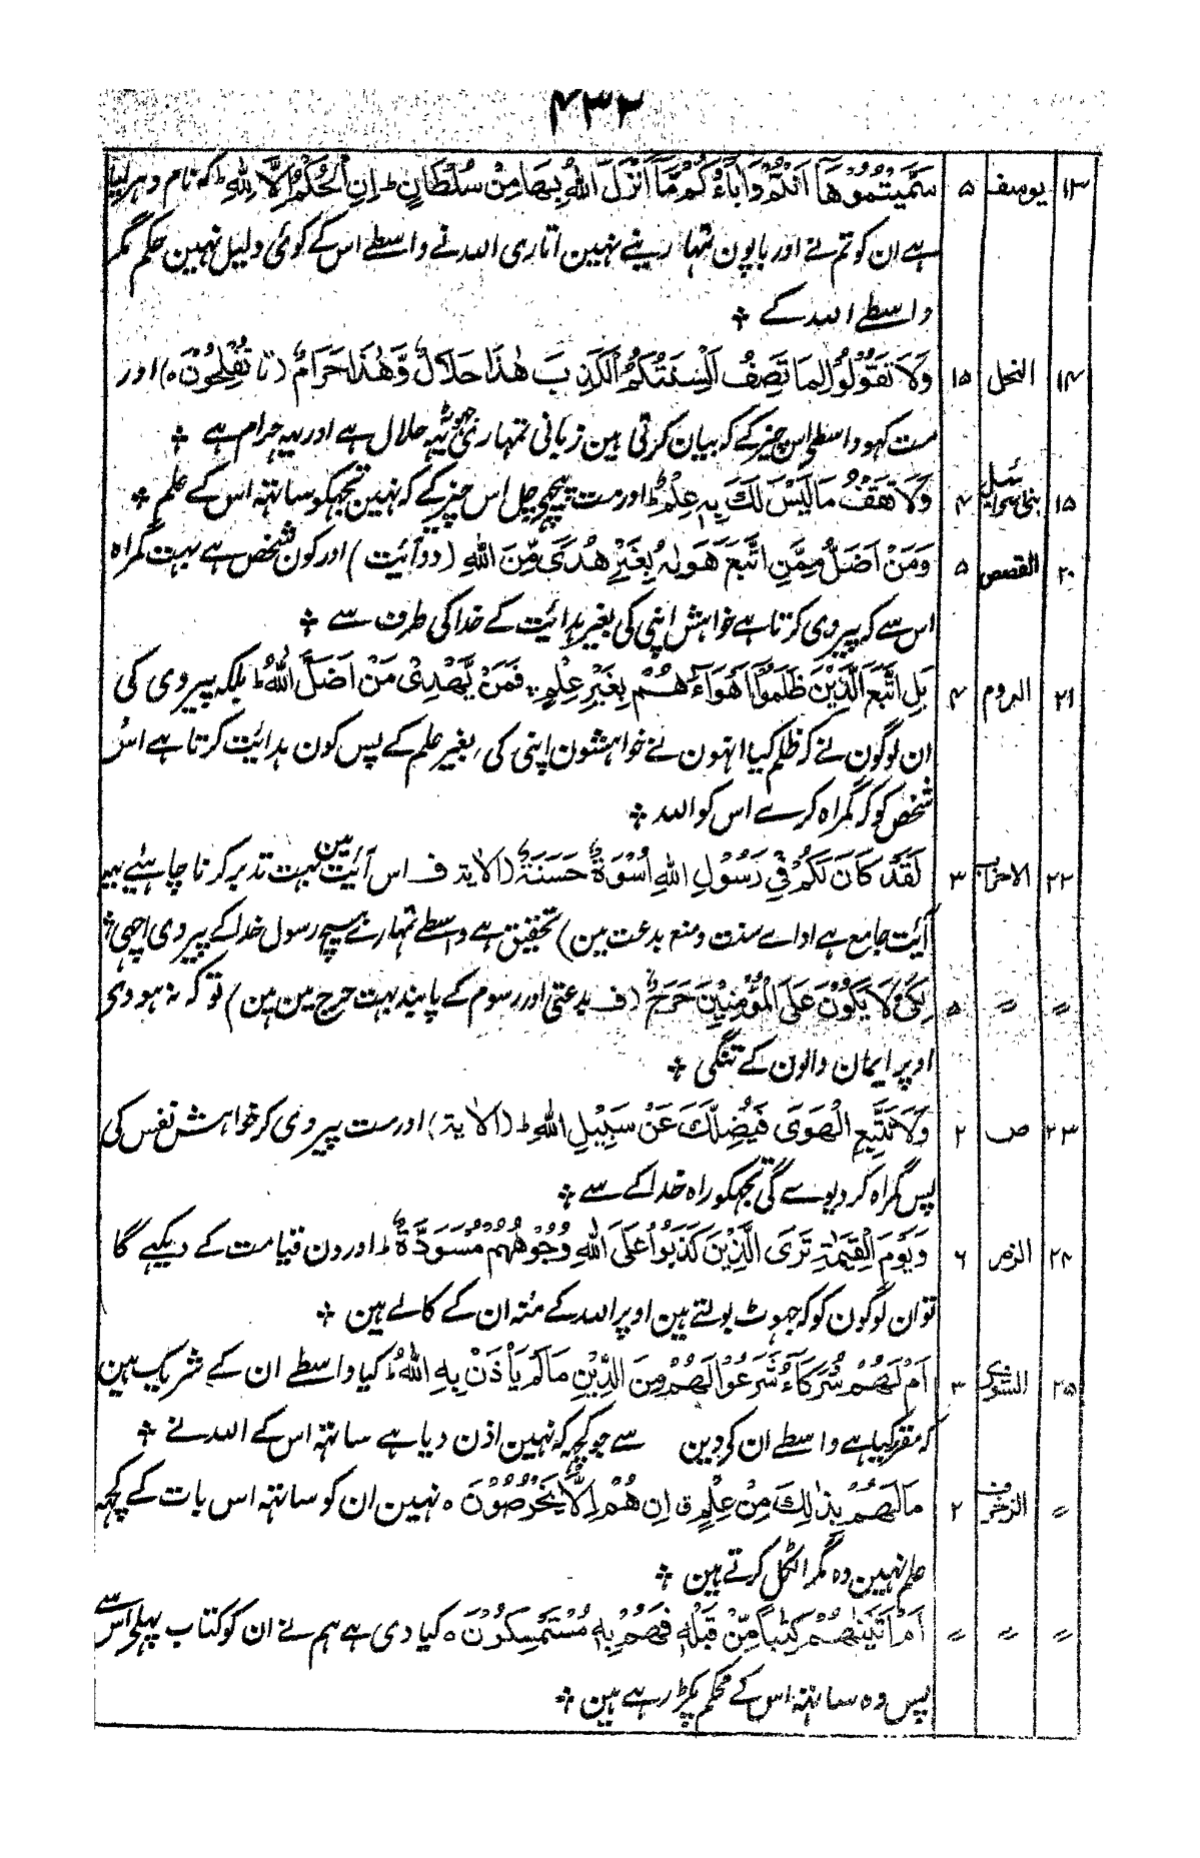 ۴۳۲
۱۳ یوسف ۵ سَمَّيْتُمُوْهَآ اَنْتُمْ وَاٰبَآءُكُمْ مَّآ اَنْزَلَ اللّٰهُ بِهَا مِنْ سُلْطَانٍ ط اِنِ الْحُكْمُ اِلَّا لِلّٰهِ ط کہ نام دہر لیا
ہے ان کو تم نے اور باپون تمہارینے نہین اتاری اللہ نے واسطے اس کے کوئی دلیل نہین حکم مگر
واسطے اللہ کے ❖
۱۴ النحل ۱۵ وَلَا تَقُوْلُوْا لِمَا تَصِفُ اَلْسِنَتُكُمُ الْكَذِبَ هٰذَا حَلَالٌ وَّهٰذَا حَرَامٌ (تا تُفْلِحُوْنَ ہ) اور
مت کہو واسطی اس چیز کے کہ بیان کرتی ہین زبانی تمہاری جھوٹ یہہ حلال ہے اور یہہ حرام ہے ❖
۱۵ بنی اسرائیل ۴ وَلَا تَقْفُ مَا لَيْسَ لَكَ بِهٖ عِلْمٌ ط اور مت پیچھے چل اس چیز کے کہ نہین تجھکو ساتہہ اس کے علم ❖
۲۰ القصص ۵ وَمَنْ اَضَلُّ مِمَّنِ اتَّبَعَ هَوٰىهُ بِغَيْرِ هُدًى مِّنَ اللّٰهِ (دو آئیت) اور کون شخص ہے بہت گمراہ
اس سے کہ پیروی کرتا ہے خواہش اپنی کی بغیر ہدائیت کے خدا کی طرف سے ❖
۲۱ الروم ۴ بَلِ اتَّبَعَ الَّذِيْنَ ظَلَمُوْٓا اَهْوَآءَهُمْ بِغَيْرِ عِلْمٍ ۚ فَمَنْ يَّهْدِىْ مَنْ اَضَلَّ اللّٰهُ ط بلکہ پیروی کی
ان لوگون نے کہ ظلم کیا انہون نے خواہشون اپنی کی بغیر علم کے پس کون ہدائیت کرتا ہے اس
شخص کو کہ گمراہ کرے اس کو اللہ ❖
۲۲ الاحزاب ۳ لَقَدْ كَانَ لَكُمْ فِيْ رَسُوْلِ اللّٰهِ اُسْوَةٌ حَسَنَةٌ (الاٰیۃ ف اس آئیت مین بہت تدبر کرنا چاہئیے یہہ
آئیت جامع ہے اداے سنت و منع بدعت مین) تحقیق ہے واسطے تمہارے بیچ رسول خدا کے پیروی اچہی ❖
〃 〃 ۵ لِكَىْ لَا يَكُوْنَ عَلَى الْمُؤْمِنِيْنَ حَرَجٌ (ف بدعتی اور رسوم کے پابند بہت حرج مین ہین) تو کہ نہ ہودی
اوپر ایمان والون کے تنگی ❖
۲۳ ص ۲ وَلَا تَتَّبِعِ الْهَوٰى فَيُضِلَّكَ عَنْ سَبِيْلِ اللّٰهِ ط (الاٰیۃ) اور مت پیروی کر خواہش نفس کی
پس گمراہ کر دیوے گی تجہکو راہ خدا کے سے ❖
۲۴ الزمر ۶ وَيَوْمَ الْقِيٰمَةِ تَرَى الَّذِيْنَ كَذَبُوْا عَلَى اللّٰهِ وُجُوْهُهُمْ مُّسْوَدَّةٌ ط اور دن قیامت کے دیکہے گا
تو ان لوگون کو کہ جہوٹ بولتے ہین اوپر اللہ کے منہ ان کے کالے ہین ❖
۲۵ الشوریٰ ۳ اَمْ لَهُمْ شُرَكَآءُ شَرَعُوْا لَهُمْ مِّنَ الدِّيْنِ مَا لَمْ يَأْذَنْ بِهِ اللّٰهُ ط کیا واسطے ان کے شریک ہین
کہ مقرر کیا ہے واسطے ان کو دین سے جو کچہہ کہ نہین اذن دیا ہے ساتہہ اس کے اللہ نے ❖
〃 الزخرف ۲ مَا لَهُمْ بِذٰلِكَ مِنْ عِلْمٍ ق اِنْ هُمْ اِلَّا يَخْرُصُوْنَ ہ نہین ان کو ساتہہ اس بات کے کچہہ
علم نہین وہ مگر اٹکل کرتے ہین ❖
〃 〃 〃 اَمْ اٰتَيْنٰهُمْ كِتٰبًا مِّنْ قَبْلِهٖ فَهُمْ بِهٖ مُسْتَمْسِكُوْنَ ہ کیا دی ہے ہم نے ان کو کتاب پہلے اس سے
پس وہ ساتہہ اس کے محکم پکڑ رہے ہین ❖